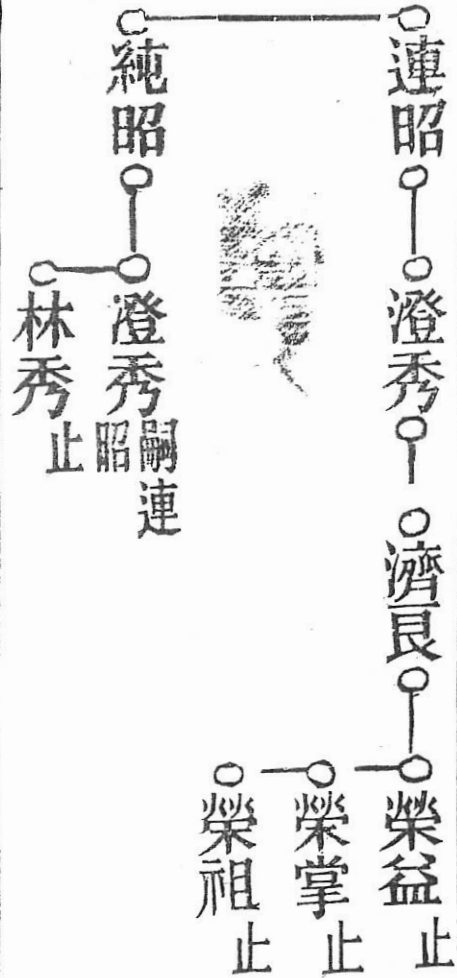 連昭
澄秀
濟艮
榮益 止
榮掌 止
榮祖 止
純昭
澄秀 嗣連昭
林秀 止